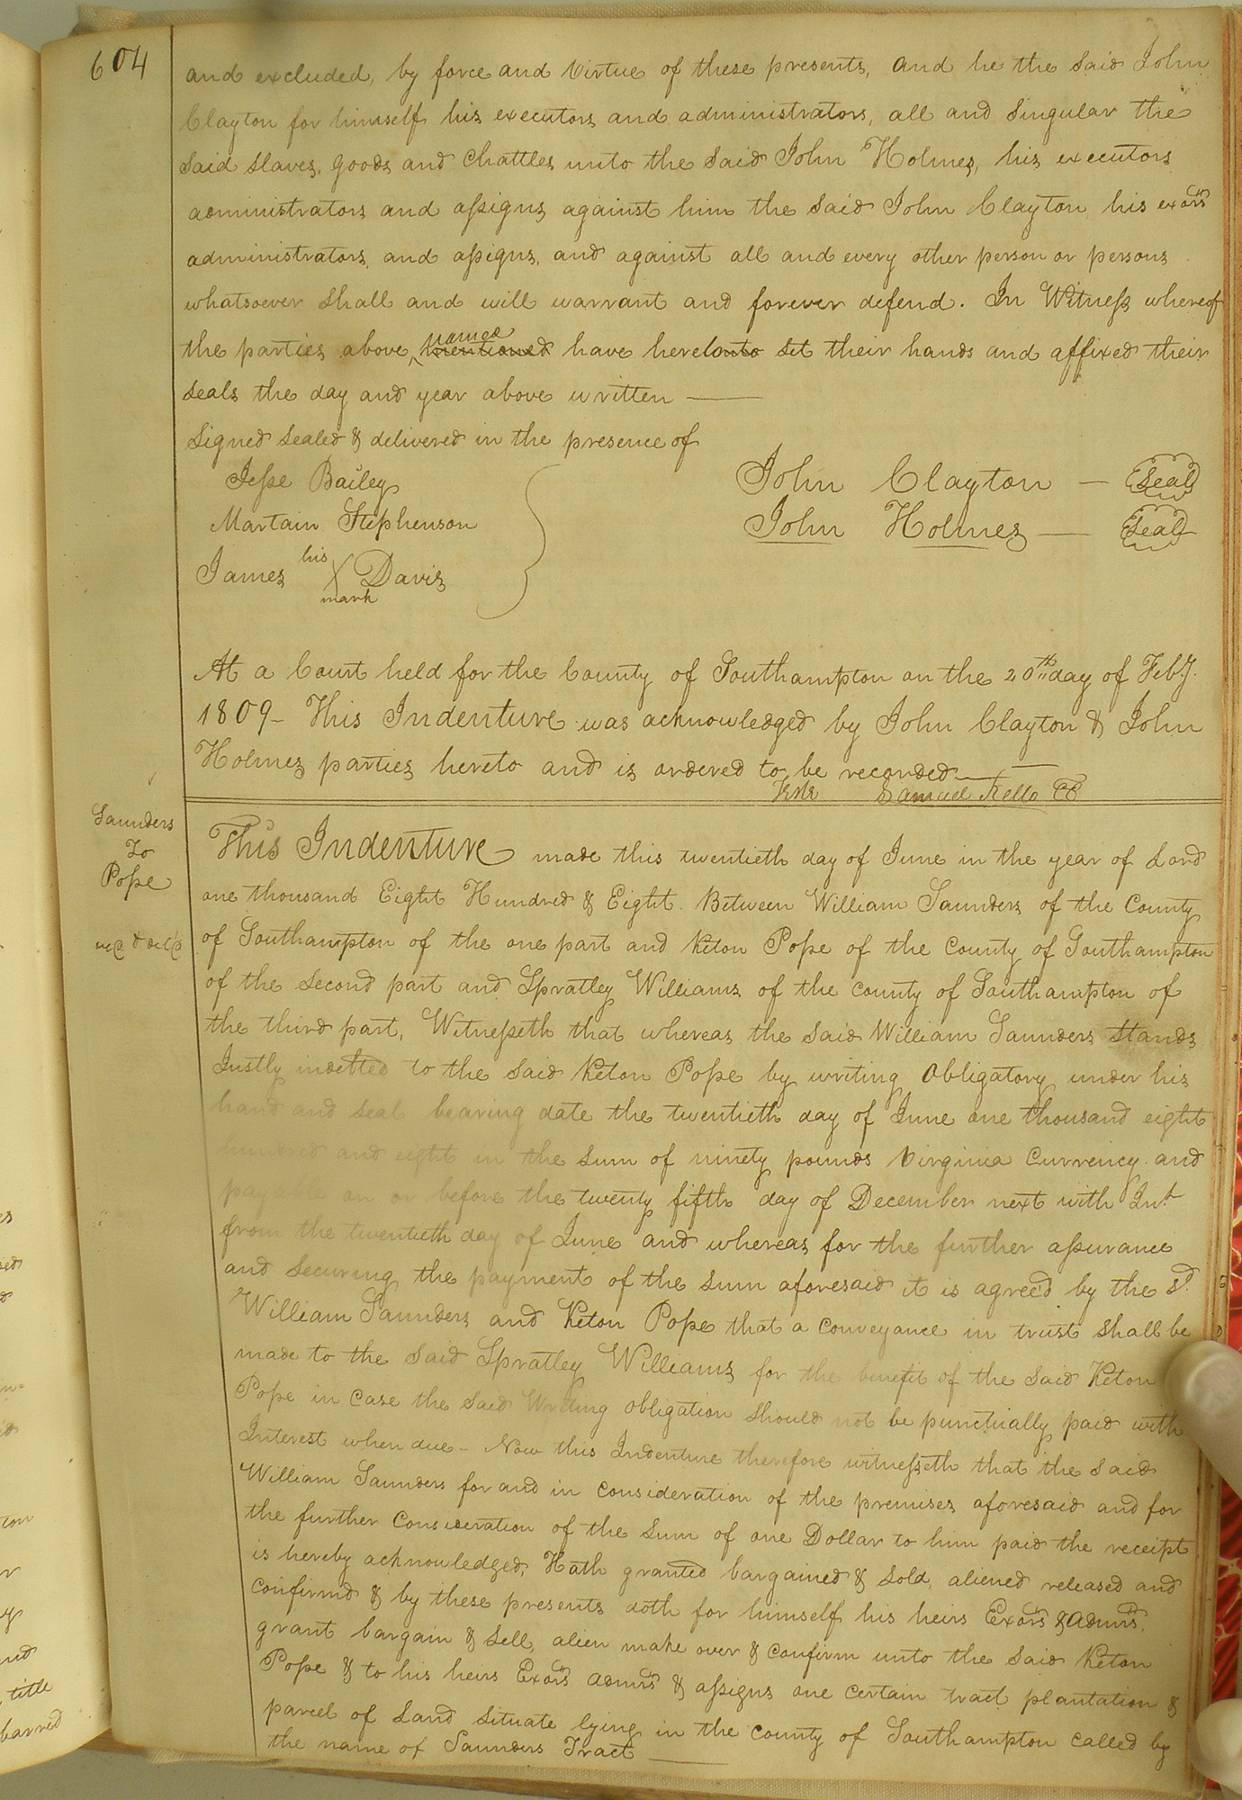 604
and excluded, by force and virtue of these presents, and he the said John
Clayton for himself his executors and administrators, all and singular the
said slaves, goods and chattles unto the said John Holmes, his executors
administrators and assigns against him the said John Clayton his exors
administrators, and assigns, and against all and every other person or persons
whatsoever shall and will warrant and forever defend. In Witness whereof
the parties above named mentioned have hereto unto set their hands and affixed their
seals the day and year above written
Signed Sealed & delivered in the presence of
Jesse Bailey
Martain Stephenson
James his X mark Davis
John Clayton — Seal
John Holmes — Seal
At a Court held for the County of Southampton on the 20th day of Feby.
1809 - This Indenture was acknowledged by John Clayton & John
Holmes parties hereto and is ordered to be recorded
Teste Samuel Kello CC
Saunders
To
Pope
This Indenture made this twentieth day of June in the year of Lord
one thousand Eight Hundred & Eight. Between William Saunders of the County
of Southampton of the one part and Keton Pope of the county of Southampton
of the second part and Spratley Williams of the county of Southampton of
the third part, Witnesseth that whereas the said William Saunders stands
Justly indetted to the said Keton Pope by writing Obligatory under his
hand and seal bearing date the twentieth day of June one thousand eight
hundred and eight in the sum of ninety pounds Virginia Currency and
payable on or before the twenty fifth day of December next with Int.
from the twentieth day of June and whereas for the further assurance
and securing the payment of the sum aforesaid it is agree'd by the sd.
William Saunders and Keton Pope that a conveyance in trust shall be
made to the said Spratley Williams for the benefit of the said Keton
Pope in case the said Writing obligation should not be punctually paid with
Interest when due - Now this Indenture therefore witnesseth that the said
William Saunders for and in consideration of the premises aforesaid and for
the further consideration of the sum of one Dollar to him paid the receipt
is hereby acknowledged, Hath granted bargained & sold, aliened released and
confirmd & by these presents doth for himself his heirs Exors & admrs.
grant bargain & sell, alien make over & confirm unto the said Keton
Pope & to his heirs Exors admrs & assigns one certain tract plantation &
parcel of Land situate lying in the county of Southampton called by
the name of Saunders Tract